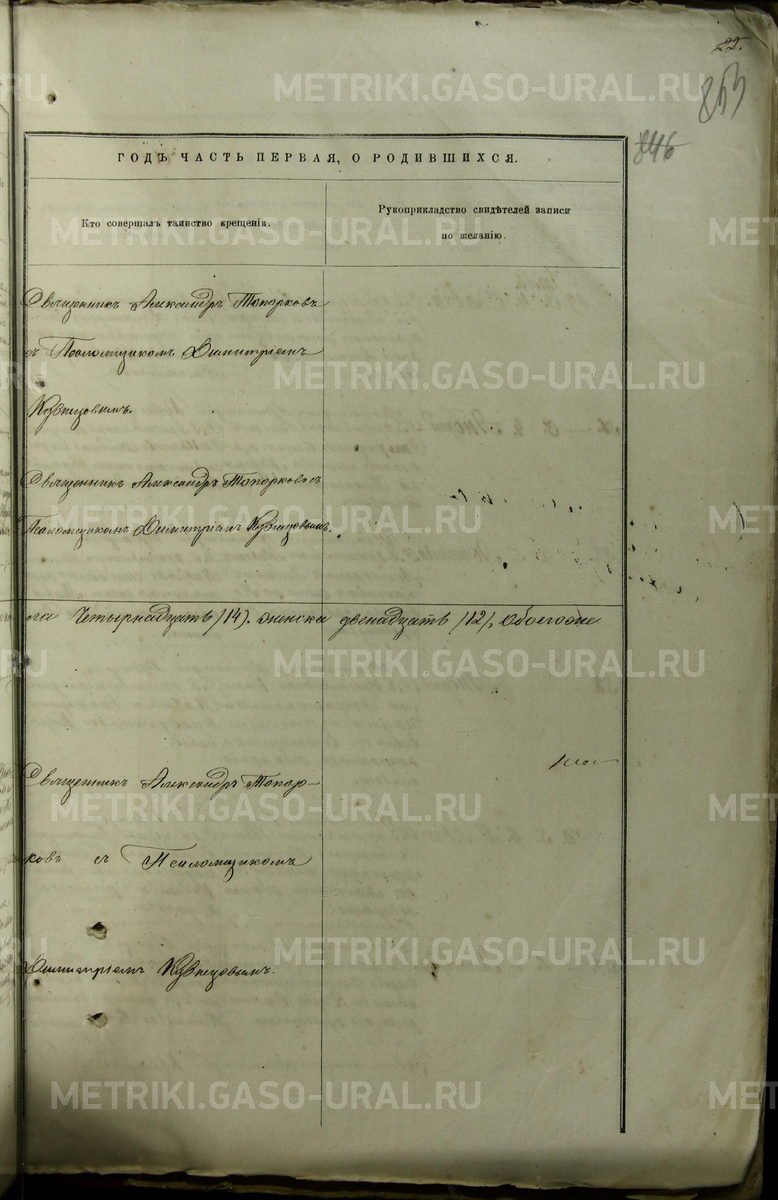 22.
853
846
ГОДЪ ЧАСТЬ ПЕРВАЯ, О РОДИВШИХСЯ.
Кто совершалъ таинство крещенія.
Рукоприкладство свидѣтелей записи
по желанію.
Священникъ Александръ Топорковъ
съ Псаломщикомъ Димитріемъ
Кузнецовымъ.
Священникъ Александръ Топорковъ съ
Псаломщикомъ Димитріемъ Кузнецовымъ.
ла Четырнадцать /14). женска двенадцать /12/, обоегоже
Священникъ Александръ Топор-
ковъ съ Псаломщикомъ
Димитріемъ Кузнецовымъ.
METRIKI.GASO-URAL.RU